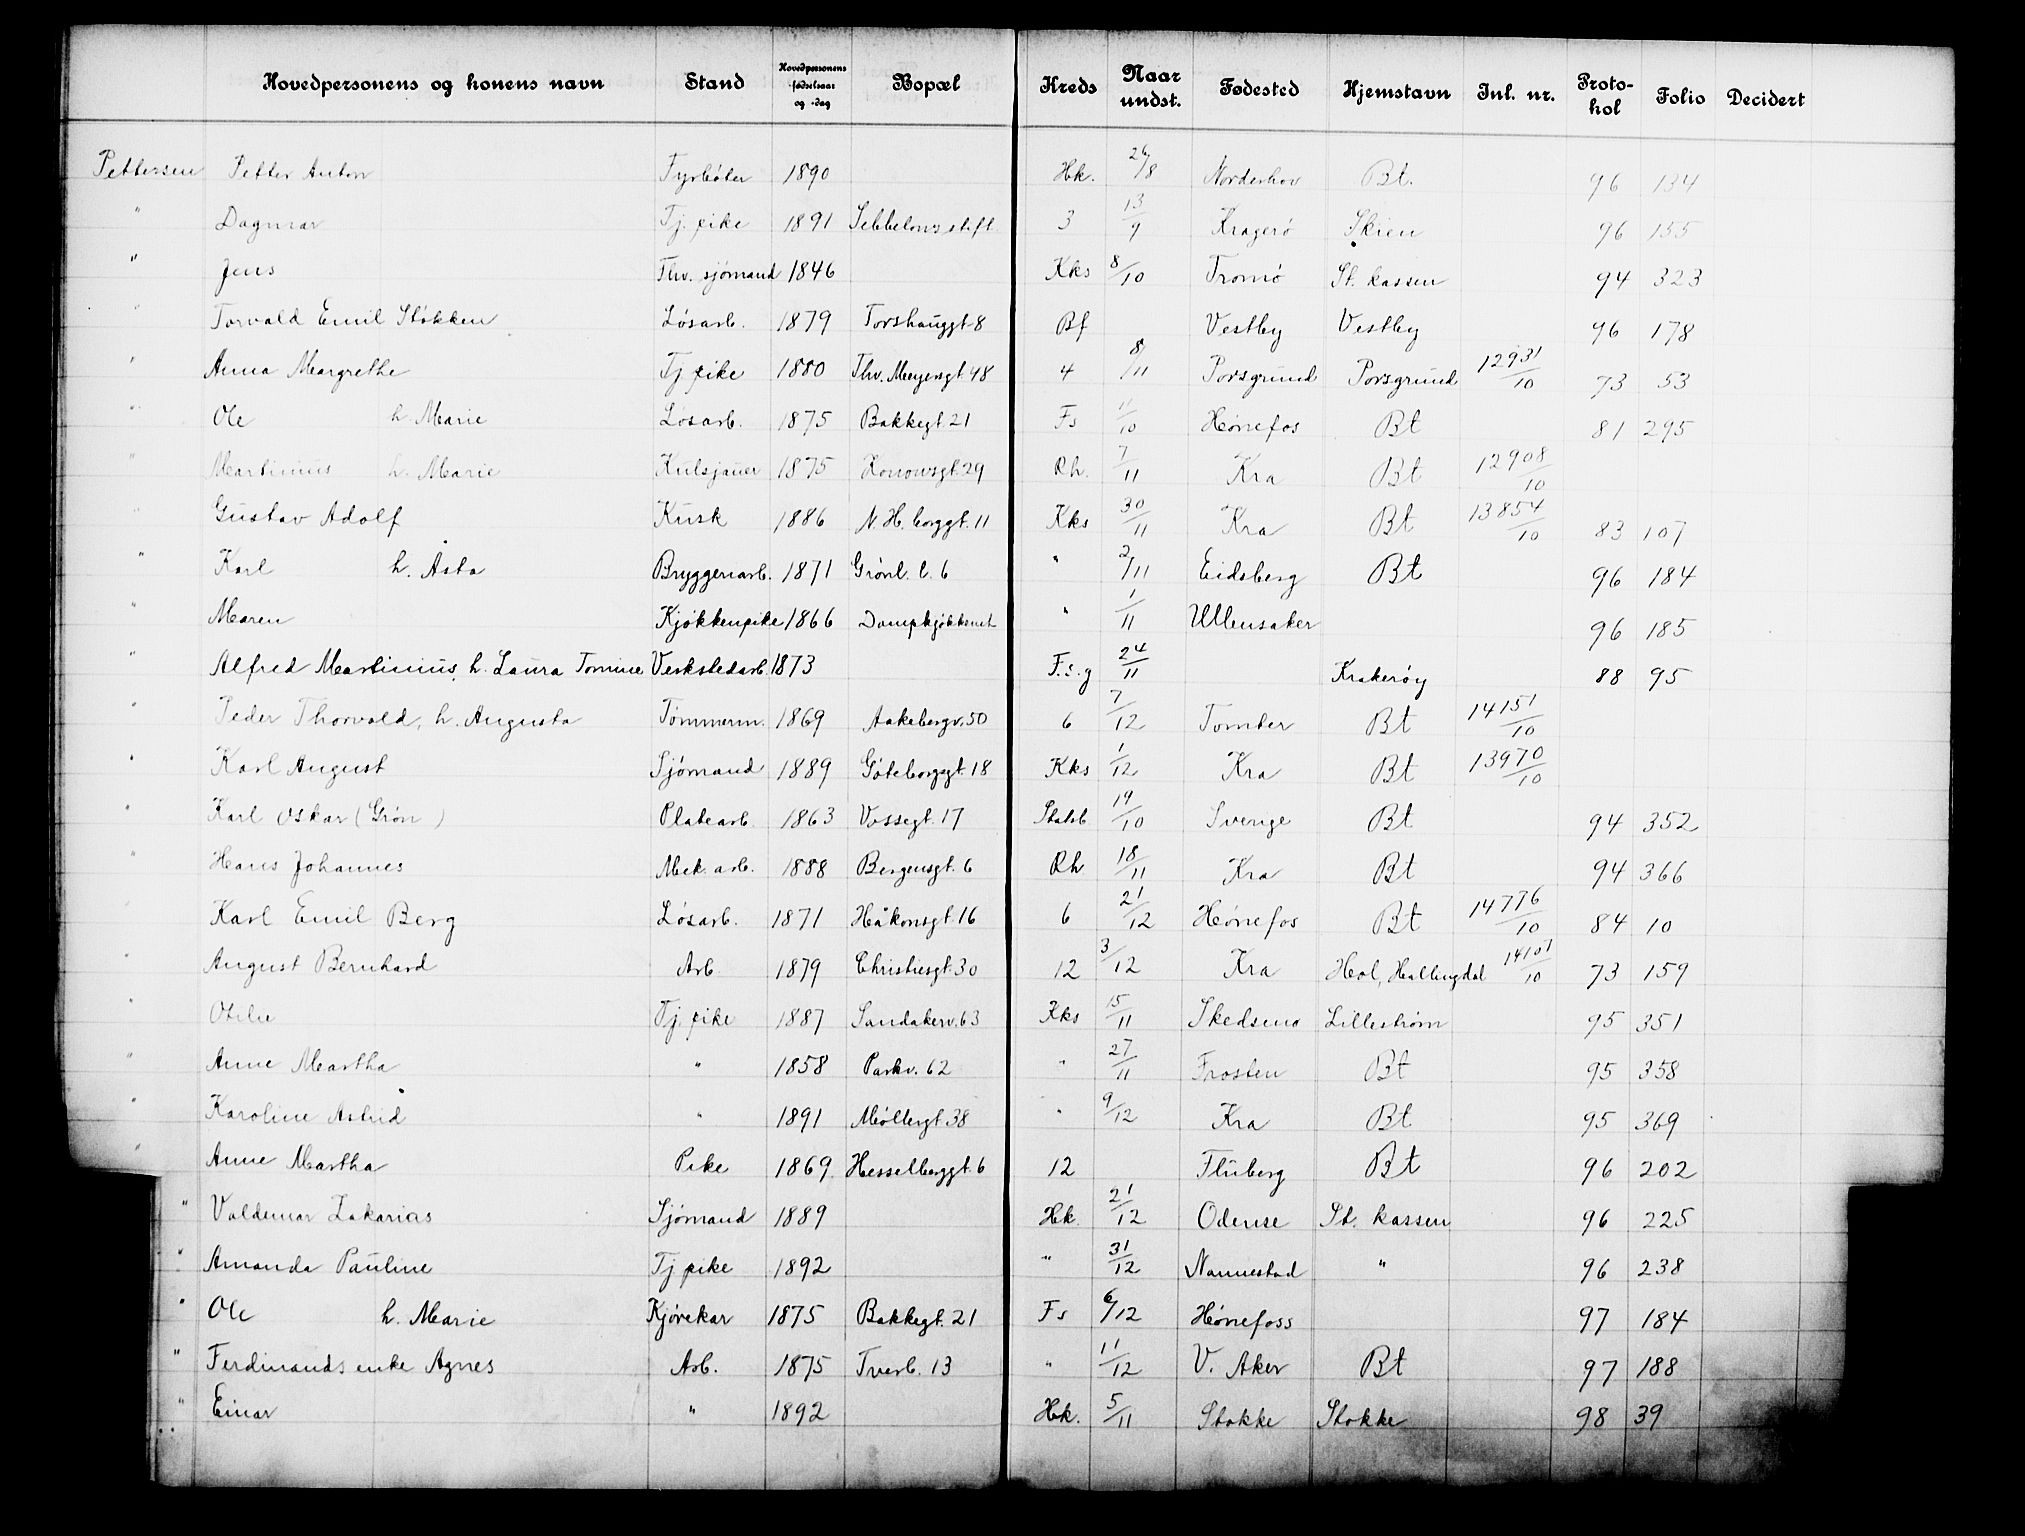 Hovedpersonens og konens navn Stand Hovedpersonens fødselsaar og -dag Bopæl Kreds Naar undst. Fødested Hjemstavn Inl. nr. Protokol Folio Decidert
Pettersen Petter Anton Fyrbøter 1890 Hk. 26/8 Norderhov Bt. 96 134
" Dagmar Tj. pike 1891 Sebbelowsstift 3 13/9 Kragerø Skien 96 155
" Jens Fhv. sjømand 1846 Kks 8/10 Tromø St. kassen 94 323
" Torvald Emil Støkken Løsarb. 1879 Torshauggt 8 Bf Vestby Vestby 96 178
" Anna Margrethe Tj pike 1880 Thv. Meyersgt. 48 4 8/11 Porsgrund Porsgrund 12931/10 73 53
" Ole h. Marie Løsarb. 1875 Bakkegt 21 Fs 11/10 Hønefos Bt 81 295
" Martinius h. Marie Kulsjauer 1875 Korrowsgt. 29 Rh. 7/11 Kra Bt 12908/10
" Gustav Adolf Kusk 1886 N. H. berggt. 11 Kks 30/11 Kra Bt 13854/10 83 107
" Karl h. Åsta Bryggeriarb. 1871 Grønl. l. 6 " 2/11 Eidsberg Bt 96 184
" Maren Kjøkkenpike 1866 Dampkjøkkenet " 1/11 Ullensaker 96 185
" Alfred Martinius, h. Laura Tomine Verkstedarb. 1873 F.s.g 24/11 Krakerøy 88 95
" Peder Thorvald, h. Augusta Tømmerm. 1869 Aakebergv. 50 6 7/12 Tomter Bt 14151/10
" Karl August Sjømand 1889 Gøteborgsgt. 18 Kks 1/12 Kra Bt 13970/10
" Karl Oskar (Grøn) Platearb. 1863 Vossegt. 17 Statsb 19/10 Sverige Bt 94 352
" Hans Johannes Mek. arb. 1888 Bergensgt. 6 Rh 18/11 Kra Bt 94 366
" Karl Emil Berg Løsarb. 1871 Håkonsgt. 16 6 21/12 Hønefos Bt 14776/10 84 10
" August Bernhard Arb 1879 Christiesgt. 30 12 3/12 Kra Hol, Hallingdal 14107/10 73 159
" Otilie Tj. pike 1887 Sandakerv. 63 Kks 15/11 Skedsmo Lillestrøm 95 351
" Anne Martha " 1858 Parkv. 62 " 27/11 Frosten Bt 95 358
" Karoline Astrid " 1891 Møllergt. 38 " 9/12 Kra Bt 95 369
" Anne Martha Pike 1869 Hesselberggt. 6 12 Fluberg Bt 96 202
" Valdemar Zakarias Sjømand 1889 Hk. 21/12 Odense St. kassen 96 225
" Amanda Pauline Tj pike 1892 " 31/12 Nannestad " 96 238
" Ole h. Marie Kjørekar 1875 Bakkegt. 21 Fs 6/12 Hønefoss 97 184
" Ferdinands enke Agnes Arb. 1875 Tverb. 13 " 11/12 V. Aker Bt 97 188
" Einar " 1892 Hk. 5/11 Stokke Stokke 98 39